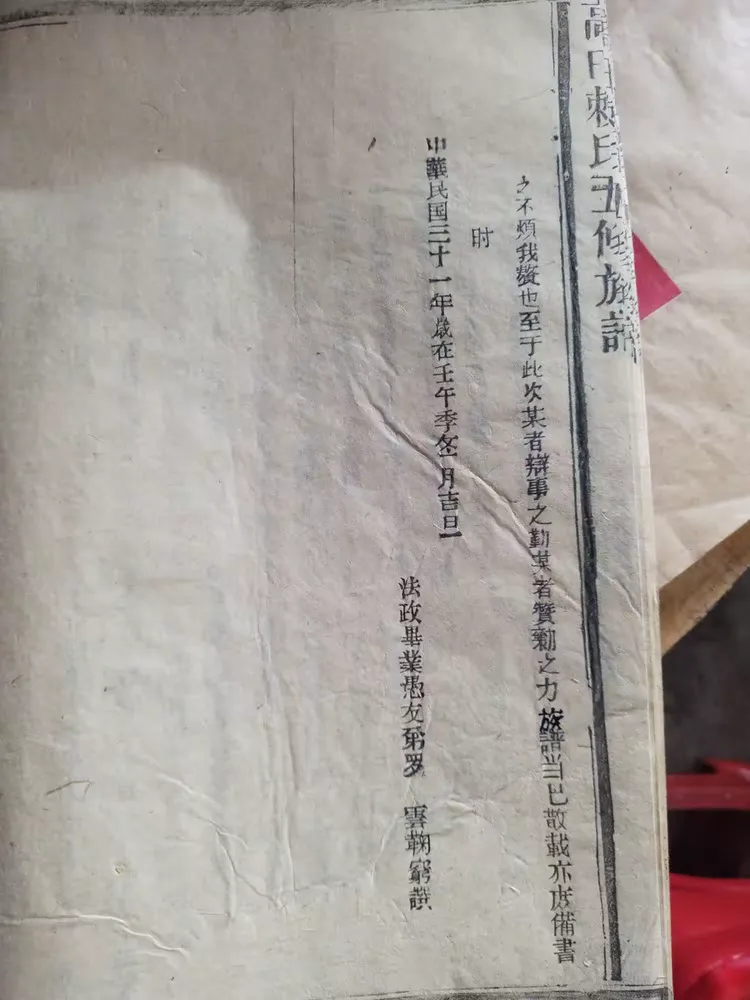 田賴氏五修族譜
之不煩我贅也至于此次某者辦事之勤某者贊勷之力族譜当已散載亦庋備書
时
中華民国三十一年歲在壬午季冬月吉日
法政畢業愚友弟罗 雲鞠窮譔